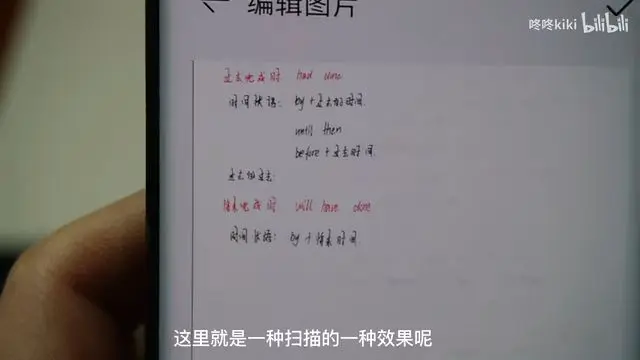 编辑图片
咚咚kiki bilibili
过去完成时 had done
时间状语: by+过去的时间.
until then
before+过去时间.
过去的过去:
将来完成时 will have done
时间状语: by+将来时间
这里就是一种扫描的一种效果呢